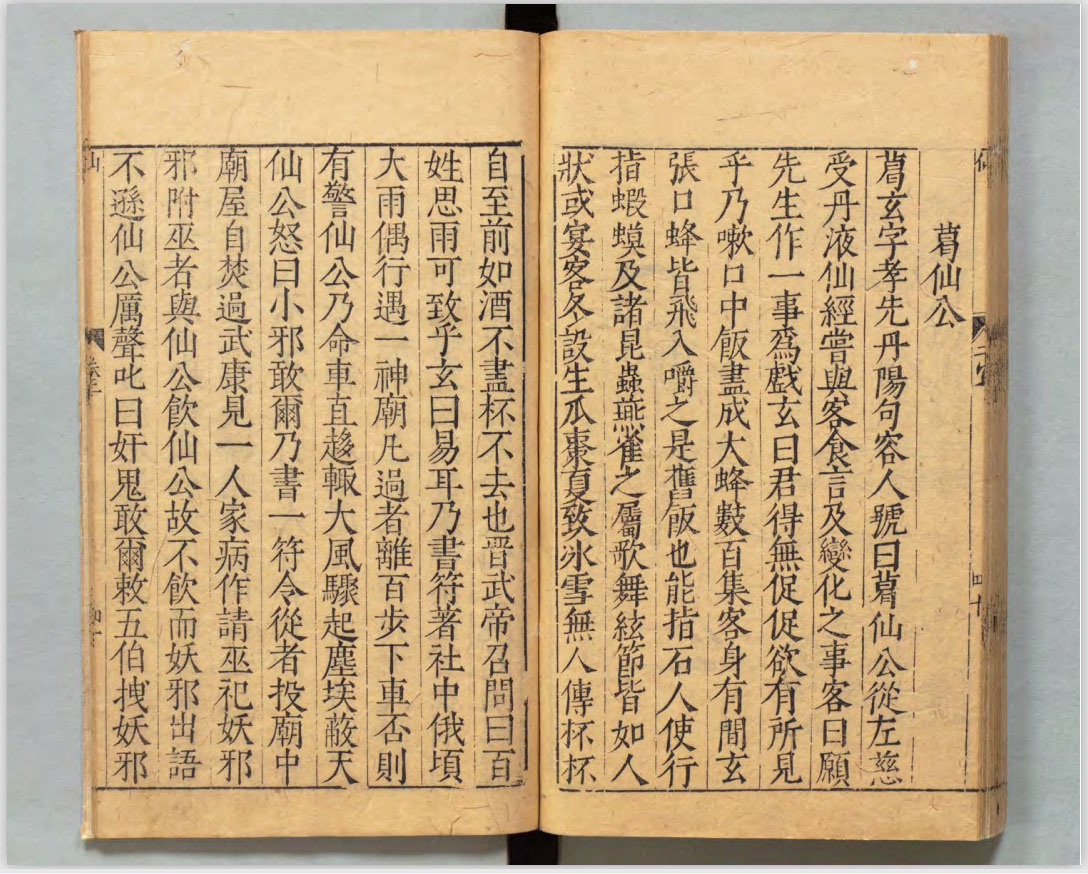 葛仙公
葛玄字孝先丹陽句容人號曰葛仙公從左慈
受丹液仙經嘗與客食言及變化之事客曰願
先生作一事爲戲玄曰君得無促促欲有所見
乎乃嗽口中飯盡成大蜂數百集客身有間玄
張口蜂皆飛入嚼之是舊飯也能指石人使行
指蝦蟆及諸昆蟲燕雀之屬歌舞絃節皆如人
狀或宴客冬設生瓜棗夏致冰雪無人傳杯杯
四十
自至前如酒不盡杯不去也晋武帝召問曰百
姓思雨可致乎玄曰易耳乃書符著社中俄頃
大雨偶行遇一神廟凡過者離百步下車否則
有警仙公乃命車直趍輙大風驟起塵埃蔽天
仙公怒曰小邪敢爾乃書一符令從者投廟中
廟屋自焚過武康見一人家病作請巫祀妖邪
邪附巫者與仙公飲仙公故不飲而妖邪出語
不遜仙公厲聲叱曰奸鬼敢爾敕五伯拽妖邪
仙